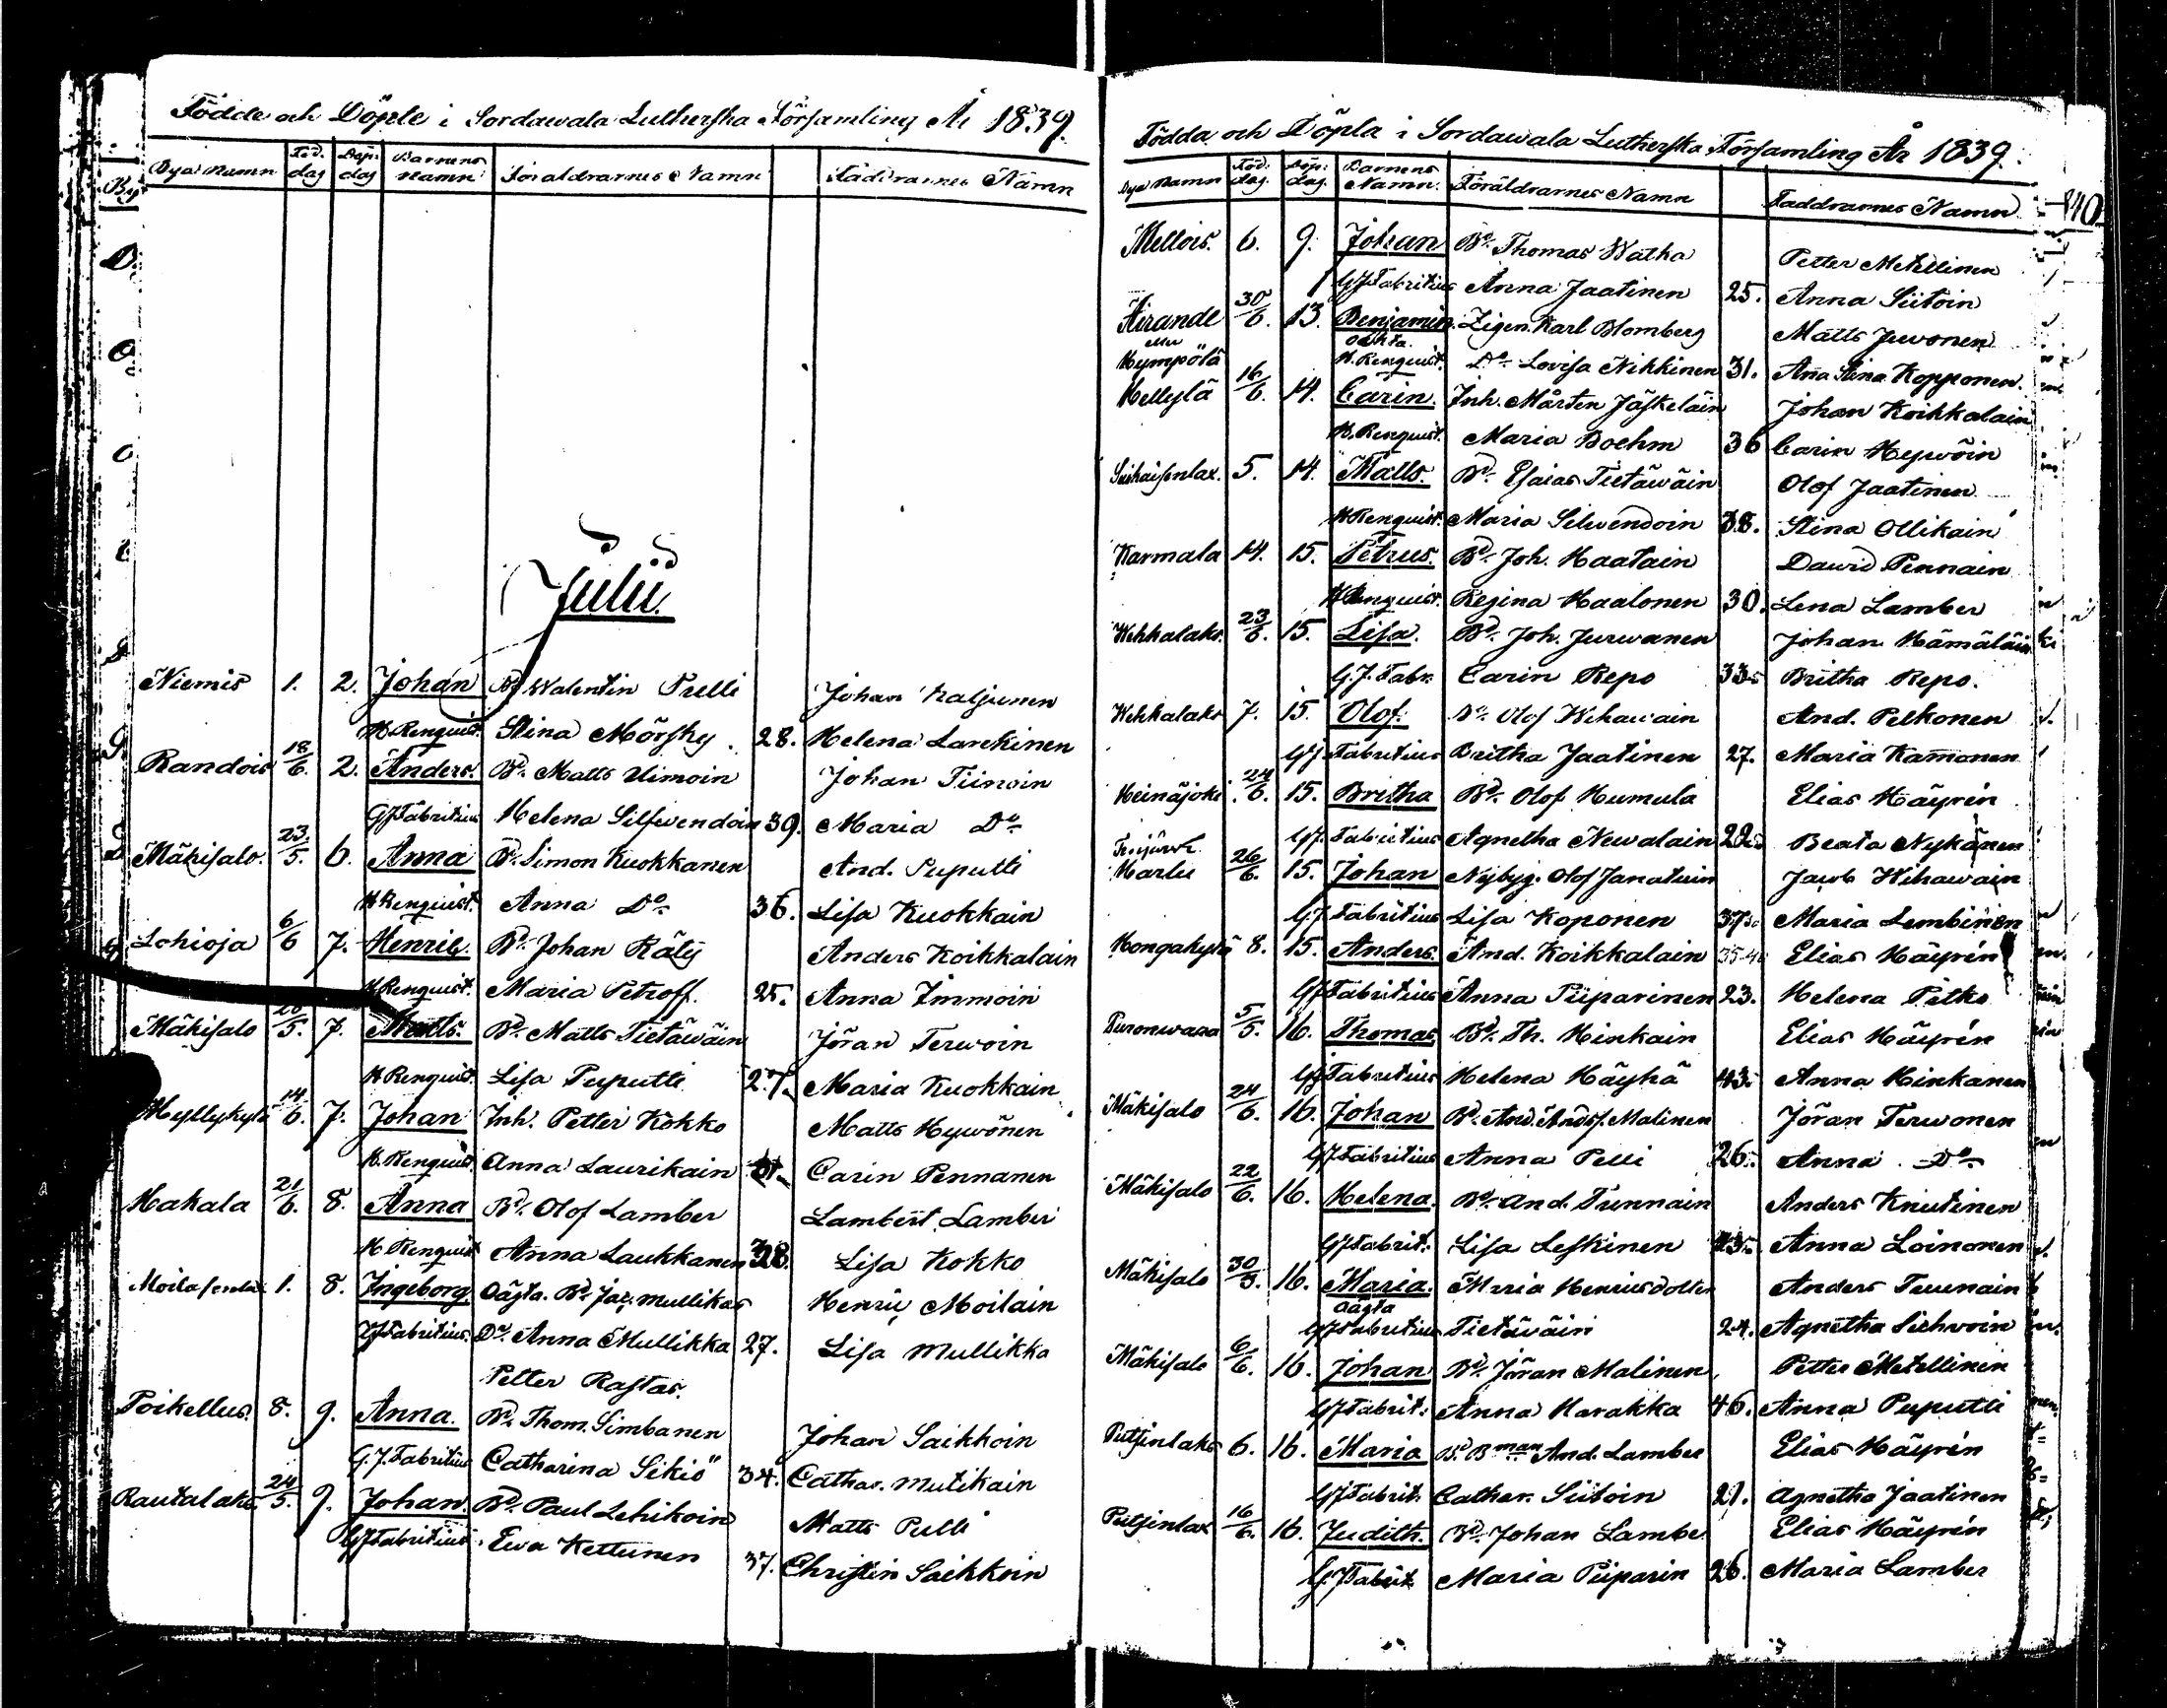 Födde och Döpte i Sordawala Lutherska Församling År 1839.
Byà Namn Föd. dag Döp: dag Barnens Namn Föräldrarnes Namn Faddrarnes Namn
Julii.
Niemis 1. 2. Johan Bd. Walentin Prelli Johan Naljunen
H Renquist. Stina Mörsky 28. Helena Larikinen
Randois 18/6. 2. Anders. Bd. Matts Uimoin Johan Tiinoin
GJFabritius Helena Silfwendoin 39. Maria Do
Mäkisalo. 23/5. 6. Anna Bd. Simon Kuokkanen And. Puputti
H Renquist. Anna Do 36. Lisa Kuokkain
Lohioja 6/6 7. Henric. Bd. Johan Räty Anders Koikkalain
H Renquist. Maria Petroff. 25. Anna Immoin
Mäkisalo 7. Matts. Bd. Matts Tietäwäin Jöran Terwoin
H Renquist. Lisa Puputti 27. Maria Kuokkain
Myllykylä 14/6. 7. Johan Inh. Petter Kokko Matts Hywönen
H. Renquist. Anna Laurikain Carin Pennanen
Hakala 21/6. 8. Anna Bd. Olof Lamber Lambert Lamber
H. Renquist Anna Laukkanen 38. Lisa Kokko
1. 8. Ingeborg Oägta. Bd. Jac. Mullikas Henric Moilain
GJFabritius. Dr. Anna Mullikka 27. Lisa Mullikka
Petter Rastas.
Poikellus. 8. 9. Anna. Bd. Thom. Simbanen Johan Saikkoin
G. J. Fabritius Catharina Sikiö 34. Cathar. Mutikain
Rautalaks 24/5. 9. Johan. Bd. Paul Lehikoin Matts Pulli
GJFabritius. Ewa Kettunen 37. Christin Saikkoin
Födda och Döpta i Sordawala Lutherska Församling År 1839.
Byà Namn Föd: dag. Döp: dag. Barnens Namn. Föräldrarnes Namn Faddrarnes Namn
Mellois. 6. 9. Johan Bd. Thomas Watka Petter Metellinen
GJFabritius Anna Jaatinen 25. Anna Siitoin
Airande 30/6. 13. Benjamin. Zigen. Karl Blomberg Matts Juwonen
eller oächta.
Kympölä H. Renquist. Do Lovisa Nikkinen 31. Ana Stina Kopponen.
Hellylä 16/6. 14. Carin. Inh. Mårten Jäskeläin Johan Koikkalain
H. Renquist. Maria Boehm 36 Carin Hywöin
5. 14. Matts. Bd. Esaias Tietäwäin Olof Jaatinen
H Renquist. Maria Silwendoin 38. Stina Ollikain
Karmala 14. 15. Petrus. Bd. Joh. Haatain Dawid Pennain
H Renquist. Regina Haalonen 30. Lena Lamber
23/6. 15. Lisa. Bd. Joh. Jurwanen Johan Hämäläin
G. J. Fabr. Carin Repo 33. Britha Repo.
7. 15. Olof. Bd. Olof Wihawain And. Pelkonen
GJ Fabritius Britha Jaatinen 27. Maria Kamonen
Heinäjoki 24/6. 15. Britha Bd. Olof Humula Elias Häyrén
GJ. Fabritius Agnetha Newalain 22. Beata Nykänen
Harlu 26/6. 15. Johan Nybyg. Olof Janatuin Jacob Wihawain
GJ. Fabritius Lisa Koponen 37. Maria Lembinen
8. 15. Anders. And. Koikkalain Elias Häyrén
GJ Fabritius Anna Piiparinen 23. Helena Pitko
5/5. 16. Thomas Bd. Th. Hinkain Elias Häyrén
GJ Fabritius Helena Häyhä 43. Anna Hinkanen
Mäkisalo 24/6. 16. Johan Bd. And. Andsf. Malinen Jöran Terwonen
GJ Fabritius Anna Pelli 26. Anna Do
Mäkisalo 22/6. 16. Helena. Bd. And. Tunnain Anders Knutinen
GJFabrit. Lisa Leskinen Anna Loinonen
Mäkisalo 30/5. 16. Maria. Maria Henricsdotter Anders Tuunain
oägta
GJFabritius Tietäväin 24. Agnetha Sihvoin
Mäkisalo 6/6. 16. Johan Bd. Jöran Malinen Petter Metellinen
GJFabrit. Anna Harakka 46. Anna Puputti
Putsinlaks 6. 16. Maria B. Bman And. Lamber Elias Häyrén
GJFabrit. Cathar. Siitoin 21. Agnetha Jaatinen
Putsinlax 16/6. 16. Judith. Bd. Johan Lambe Elias Häyrén
G. J Fabrit. Maria Piiparin 26. Maria Lamber